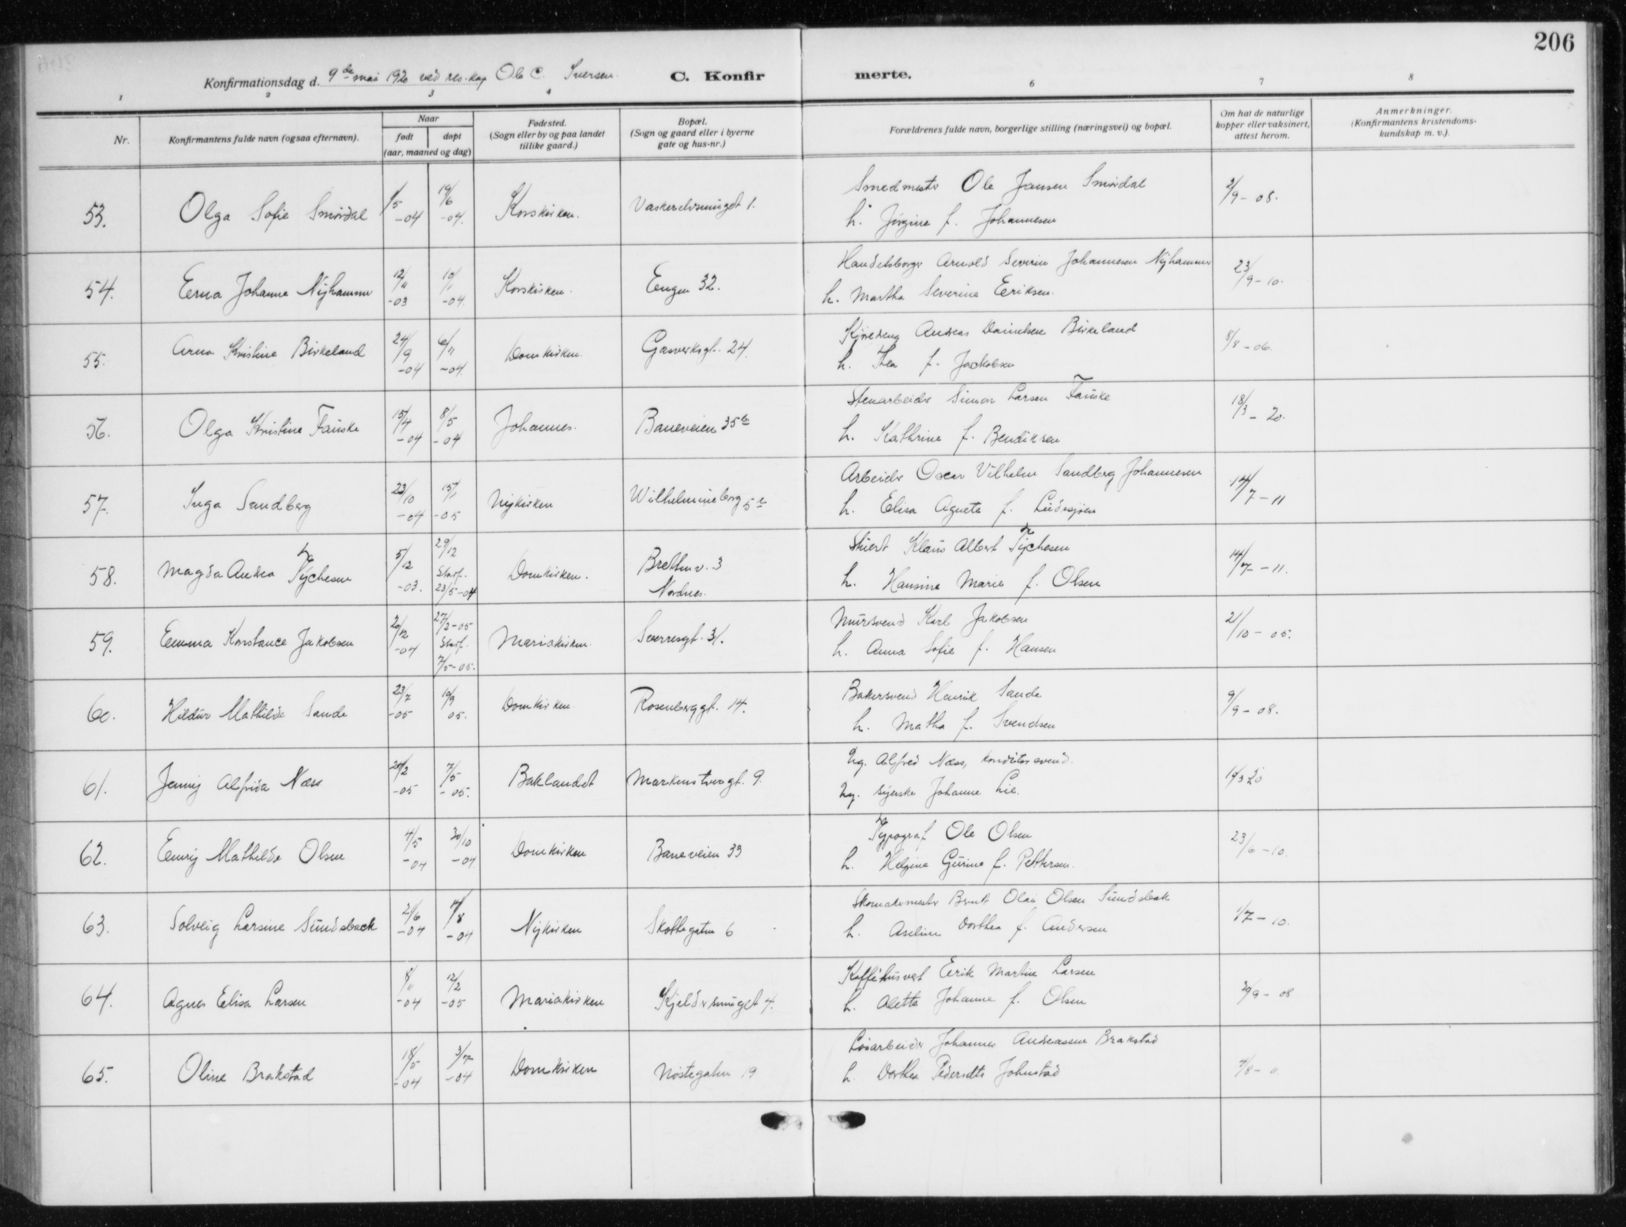 206
Konfirmationsdag d. 9de mai 1920 ved res. kap Ole C. Iversen. C. Konfirmerte.
1 2 3 4 6 7 8
Nr. Konfirmantens fulde navn (ogsaa efternavn). Naar født døpt (aar, maaned og dag) Fødested. (Sogn eller by og paa landet tillike gaard.) Bopæl. (Sogn og gaard eller i byerne gate og hus-nr.) Forældrenes fulde navn, borgerlige stilling (næringsvei) og bopæl. Om hat de naturlige kopper eller vaksinert, attest herom. Anmerkninger. (Konfirmantens kristendoms-kundskap m. v.).
53. Olga Sofie Smørdal 1/5 -04 19/6 -04. Korskirken. Vaskerelvsmuget 1. Smedmestr Ole Jansen Smørdal 2/9 - 08.
h. Jørgine f. Johannesen
54. Erna Johanne Nyhammer 12/11 -03 10/1 -04. Korskirken. Engen 32. Handelsborger Arnold Severin Johannesen Nyhammer 23/9 - 10.
h. Martha Severine Eriksen.
55. Arna Kristine Birkeland 24/9 -04 6/11 -04. Domkirken. Gasverksgt. 24. Andreas Danielsen Birkeland 8/8 - 06.
h. Thea f. Jackobsen
56. Olga Kristine Fauske 15/4 -04 8/5 -04 Johannes. Baneveien 35b Stenarbeider Simon Larsen Fauske 18/3 - 20.
h. Kathrine f. Bendiksen
57. Inga Sandberg 23/10 -04 15/1 -05 Nykirken Wilhelmineborg 5a Arbeider Oscar Vilhelm Sandberg Johannesen 14/7 - 11
h. Elisa Agneta f.
58. Magda Andrea Tychesen 5/12 -03. 29/12 Stadf. 23/5-04 Domkirken. Brethav. 3 Nordnes. Stuert Klaus Albert Tychesen 14/7 - 11.
h. Hansine Marie f. Olsen
59. Emma Konstance Jakobsen 20/12 -04 27/3-05 Stadf. 7/5-05. Mariakirken. Sverresgt. 31. Mursvend Karl Jakobsen 21/10 - 05.
h. Anna Sofie f. Hansen
60. Hildur Mathilde Sande 23/7 -05 10/9 05. Domkirken Rosenberggt. 14. Bakersvend Henrik Sande 9/9 - 08.
h. Matha f. Svendsen
61. Jenny Alfrida Næss 20/2 -05 7/5 -05. Baklandet Markensturgt. 9. Ug. Alfred Næss, konditorsvend.
Ug. syerske Johanne Lie.
62. Emmy Mathilde Olsen 4/5 -04 30/10 -04 Domkirken Baneveien 39 Typograf Ole Olsen 23/6 - 10.
h. Helgine Gurine f. Pettersen.
63. Solveig Larsine Sundsback 21/6 -04 14/8 -04 Nykirken Skottegaten 6 Skomakermester Bernt Olai Olsen Sundsbak 1/7 - 10.
h. Aseline Dorthea f. Andersen
64. Agnes Elisa Larsen 8/11 -04 12/2 -05 Mariakirken Kjeldersmuget 4. Kaffehusvert Erik Martin Larsen 29/9 - 08
h. Aletta Johanne f. Olsen
65. Oline Brakstad 18/5 -04 3/7 -04 Domkirken Nøstegaten 19 Løsarbeider Johannes Andreassen Brakstad
h. Dorthea Pedersdtr Johnstad